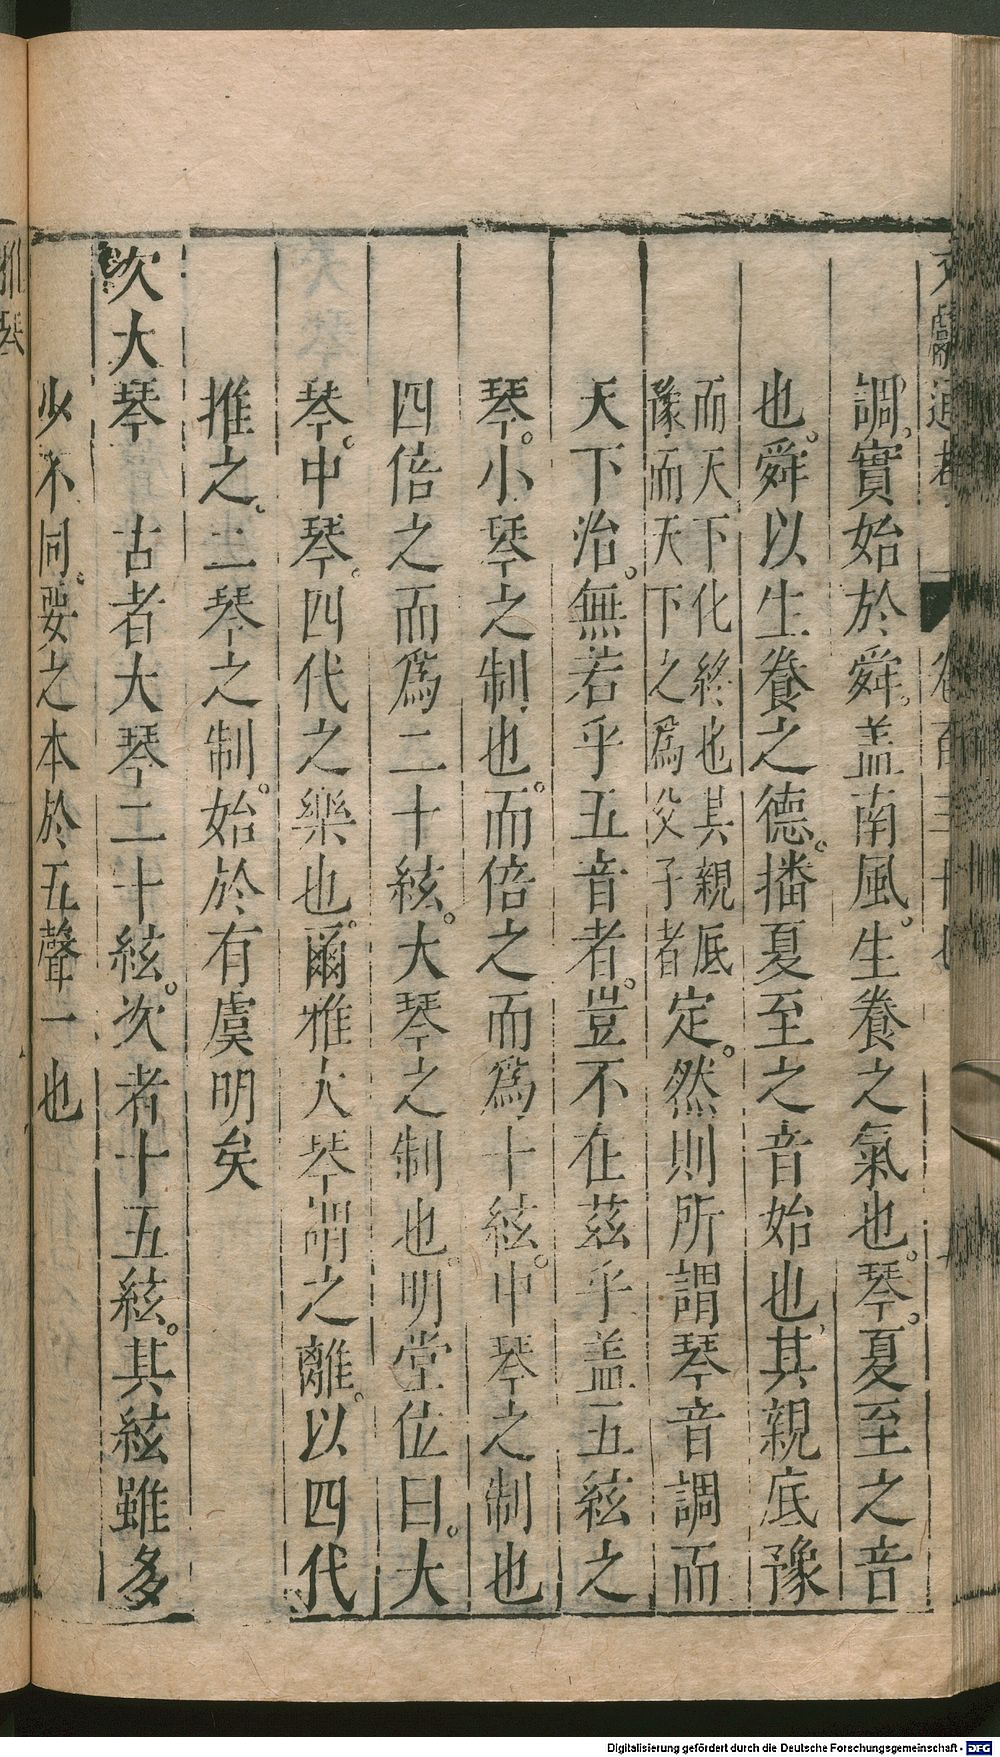 調。實始於舜。盖南風。生養之氣也。琴。夏至之音
也。舜以生養之德。播夏至之音始也。其親底豫
而天下化終也其親底
豫而天下之爲父子者
定。然則所謂琴音調而
天下治。無若乎五音者。豈不在茲乎盖五絃之
琴。小琴之制也。而倍之而爲十絃。中琴之制也
四倍之而爲二十絃。大琴之制也。明堂位曰。大
琴。中琴。四代之樂也。爾雅大琴謂之離。以四代
推之。二琴之制。始於有虞明矣
次大琴 古者大琴二十絃。次者十五絃。其絃雖多
少不同。要之本於五聲一也
雅琴
Digitalisierung gefördert durch die Deutsche Forschungsgemeinschaft - DFG